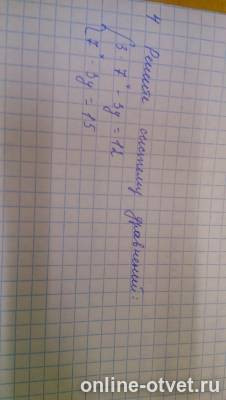 4 Решите систему уравнений:
{ 3 · 7ˣ - 3y = 12
{ 7ˣ · 3y = 15
online-otvet.ru